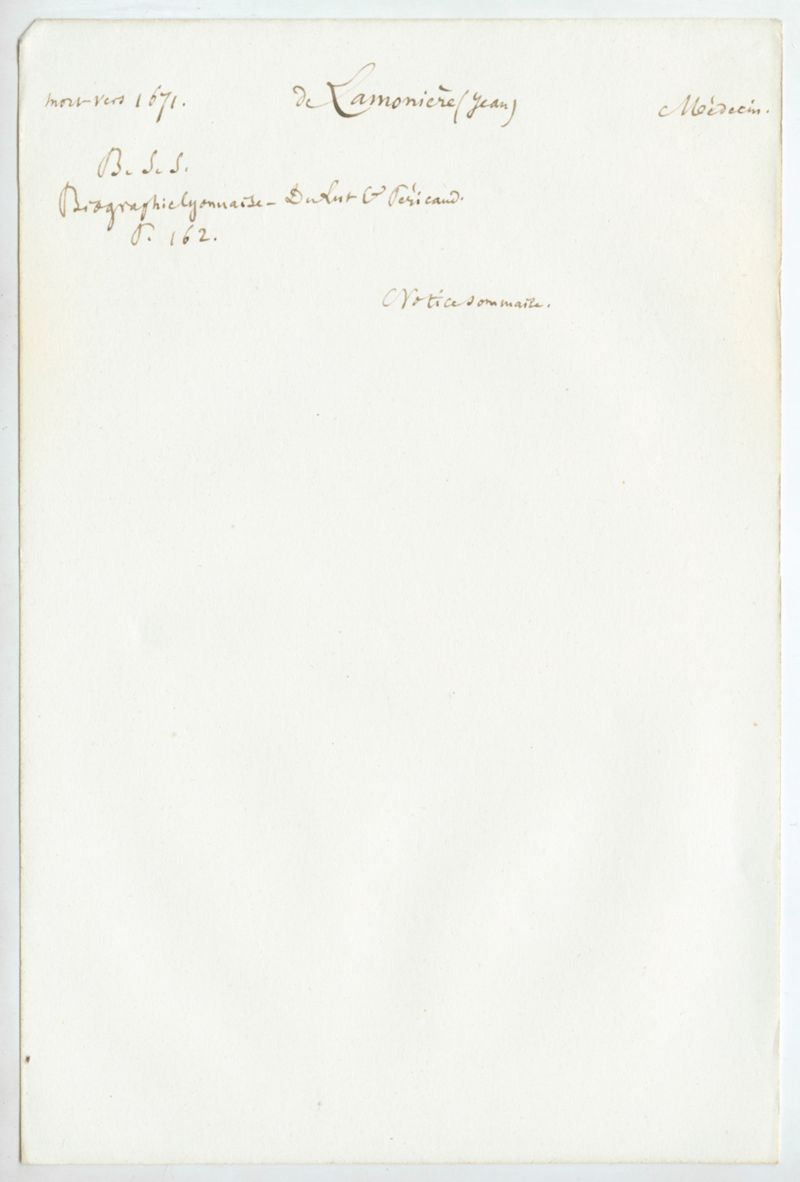 mort vers 1671. de Lamonière (Jean) Médecin.
B. S. S.
Biographie lyonnaise - Du Lut & Péricaud.
P. 162.
Notice sommaire.